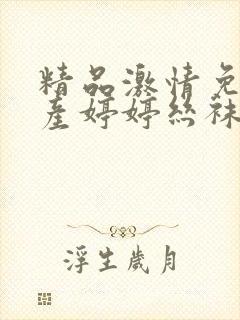 精品激情免
産婷婷丝袜
浮生歲月